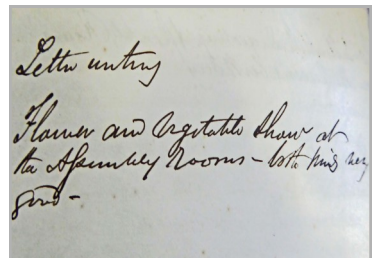 Letter writing
Flower and Vegetable Show at
the Assembly Rooms – both kinds very
good –